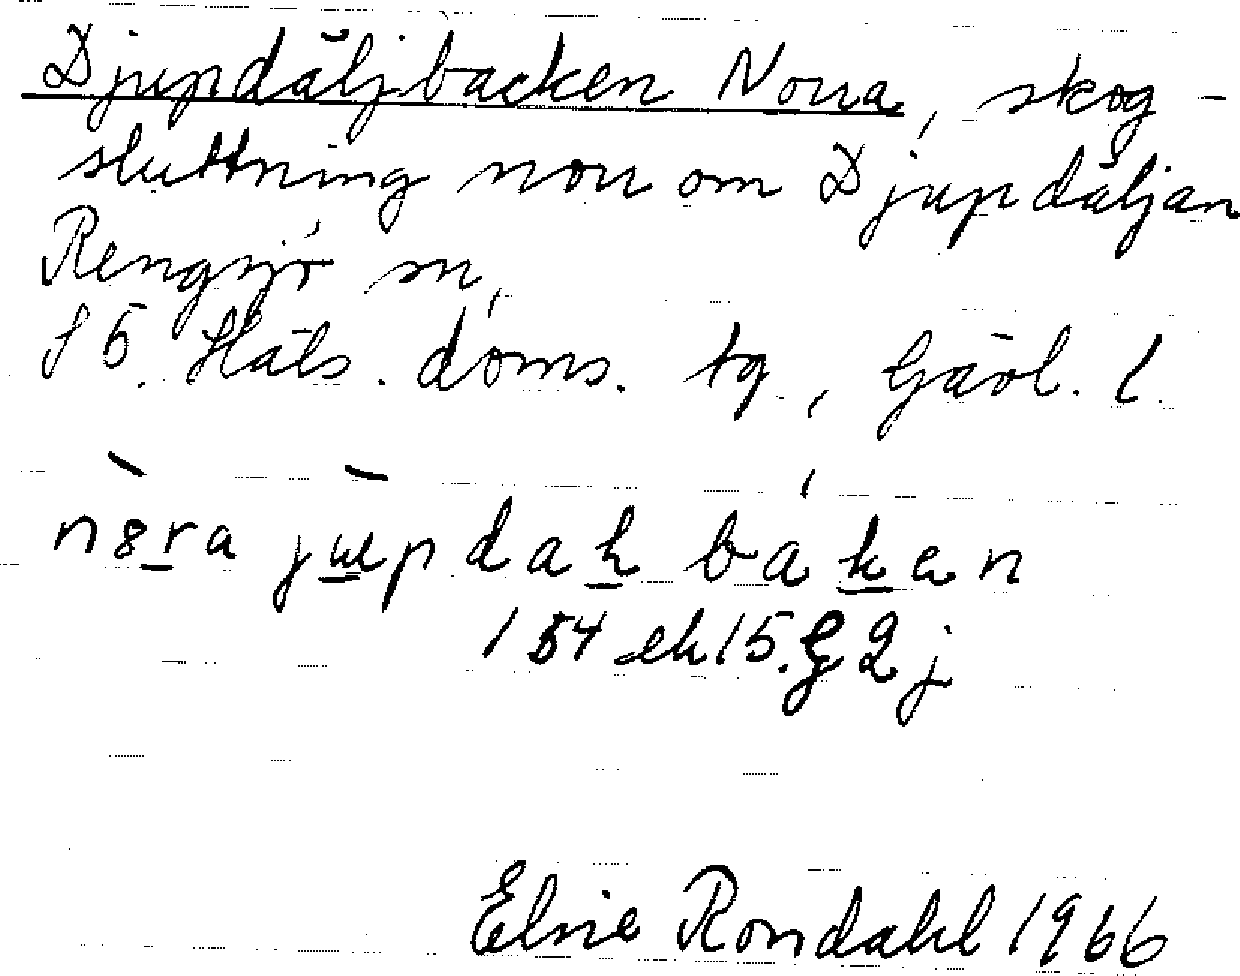 Djupdäljbacken Norra, skog-
sluttning norr om Djupdäljan
Rengsjö sn,
S Häls. doms. tg, Gävl. l.
154 ek 15. G 2 j
Elsie Rondahl 1966